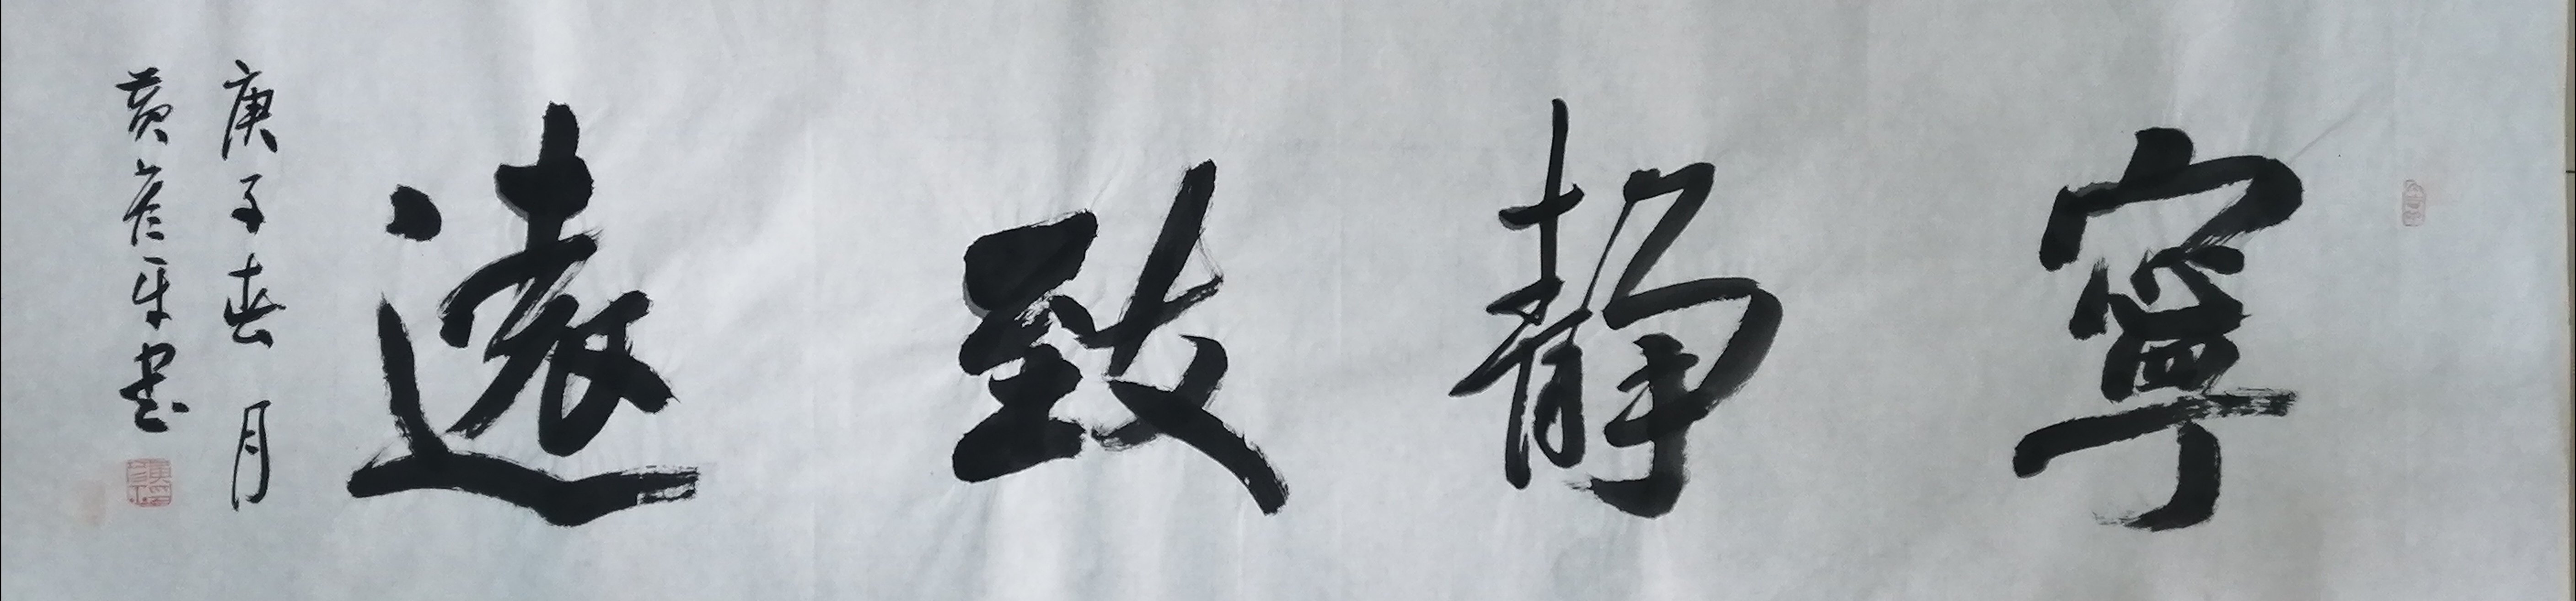 寧靜致遠
庚子春月
黄彦平書